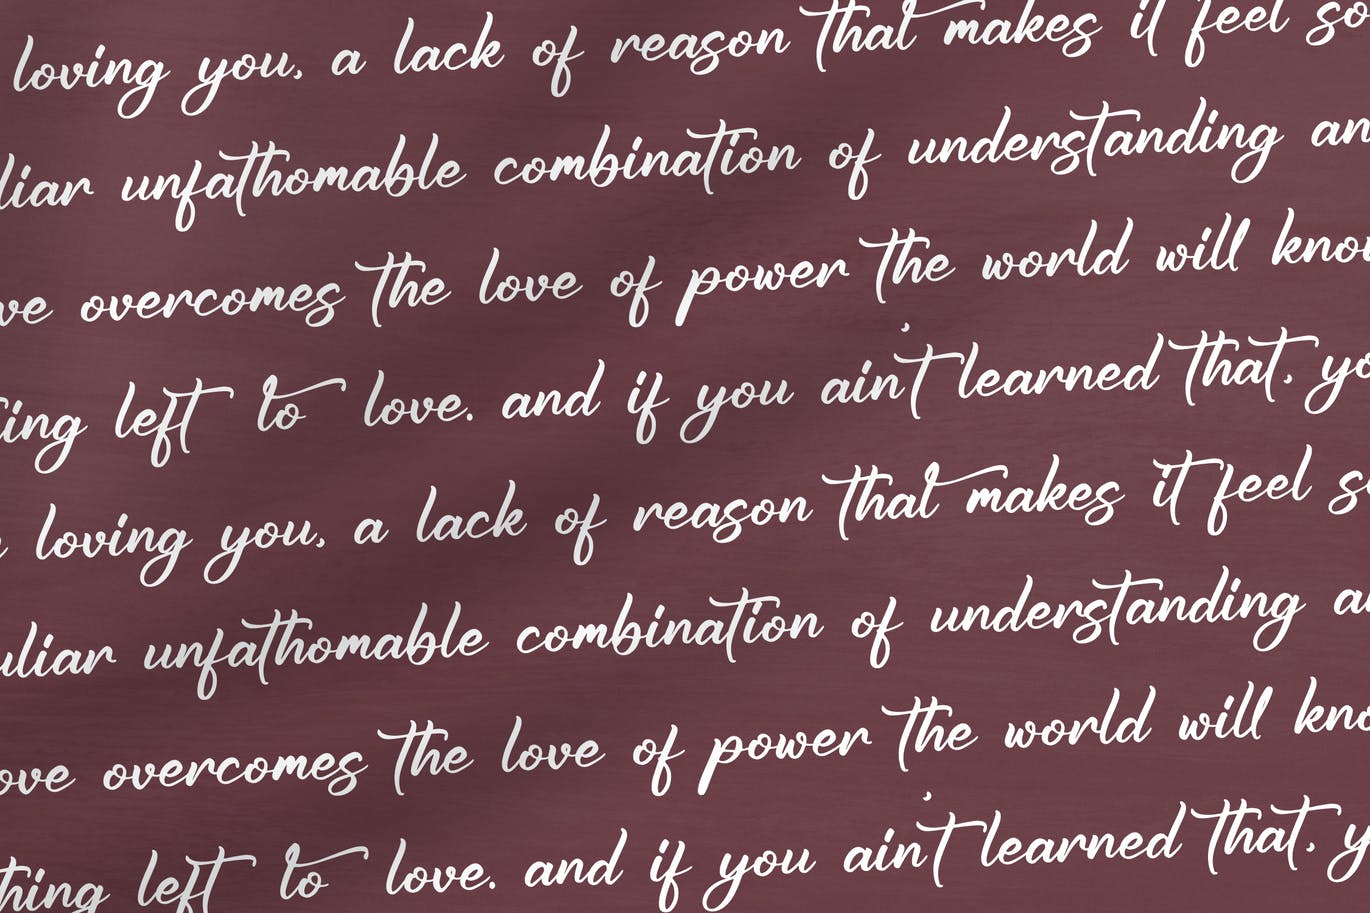 loving you, a lack of reason that makes it feel so
liar unfathomable combination of understanding an
ve overcomes the love of power the world will know
ing left to love. and if you ain't learned that, yo
loving you, a lack of reason that makes it feel s
uliar unfathomable combination of understanding a
ove overcomes the love of power the world will kno
thing left to love. and if you ain't learned that, y